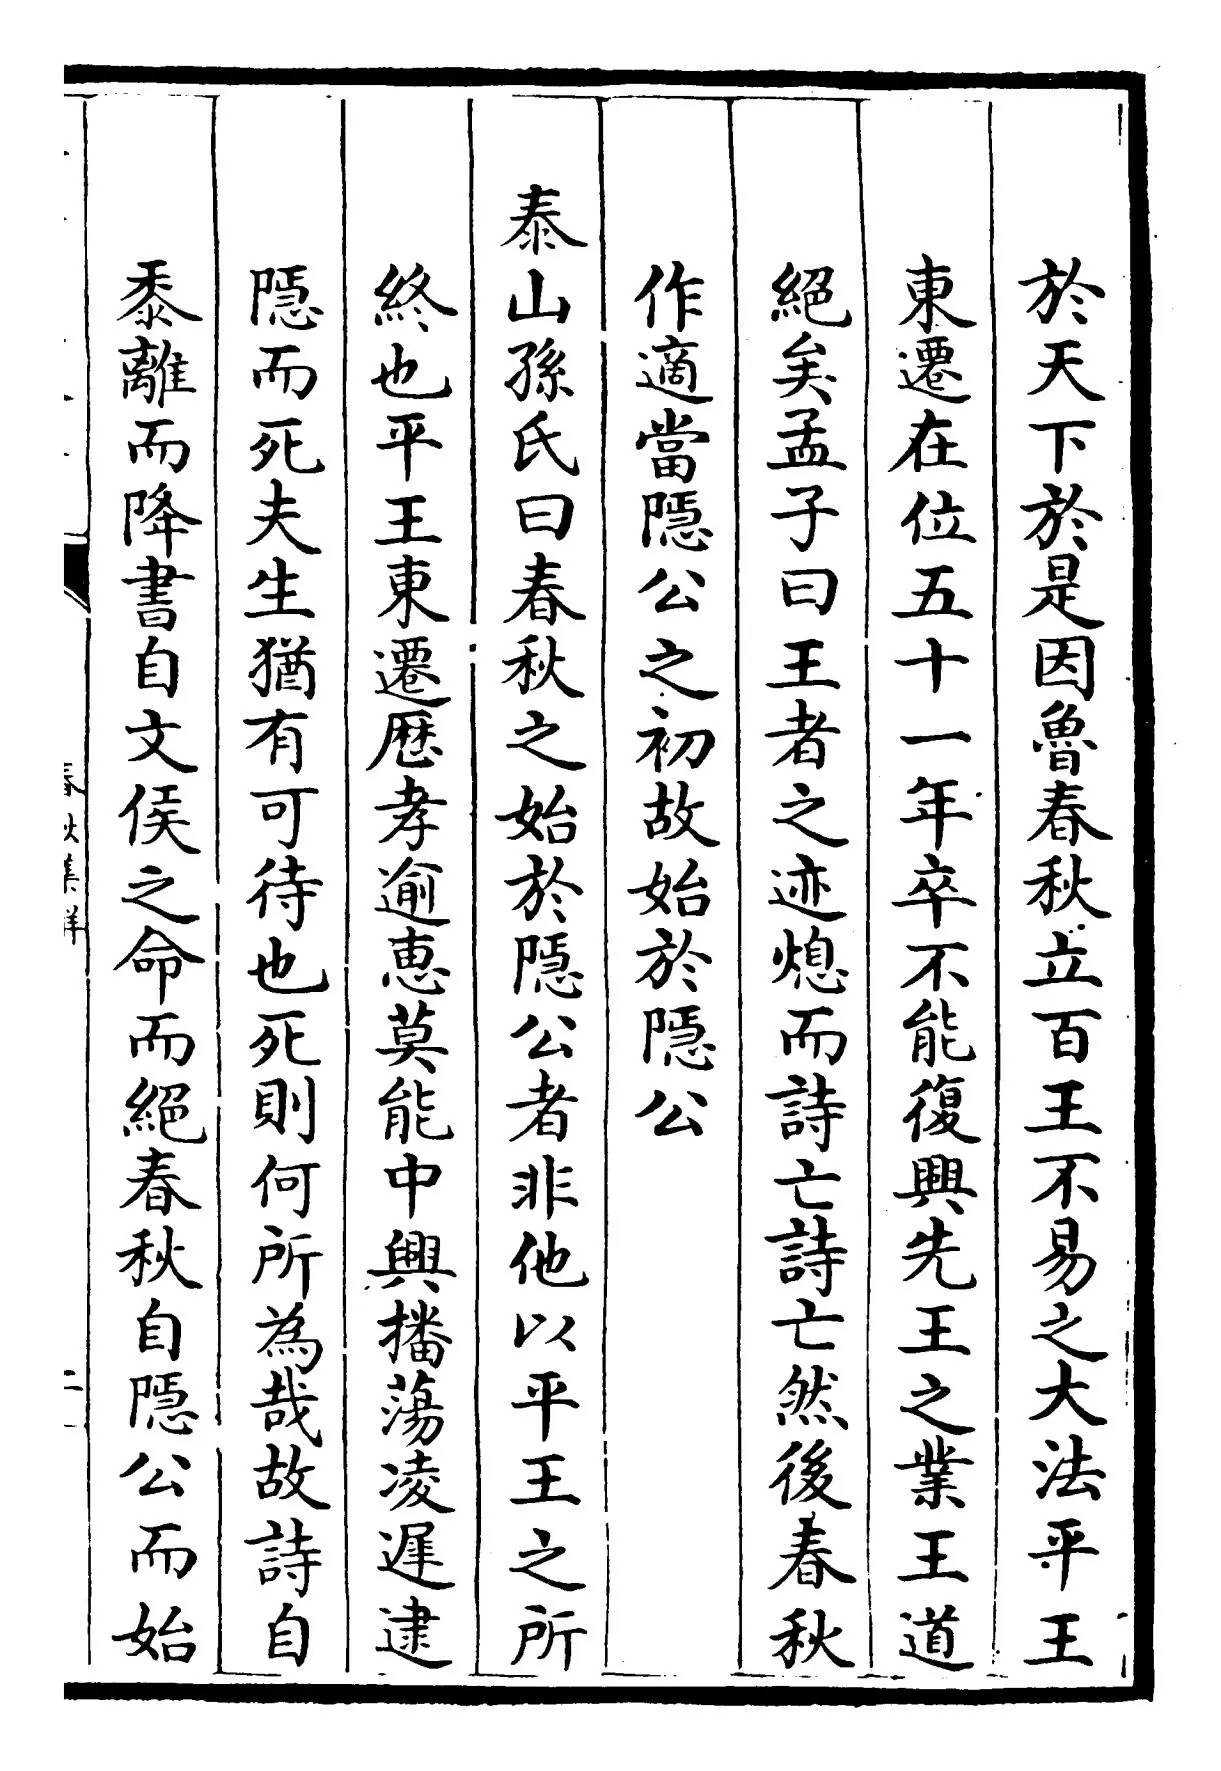 於天下於是因魯春秋立百王不易之大法平王
東遷在位五十一年卒不能復興先王之業王道
絕矣孟子曰王者之迹熄而詩亡詩亡然後春秋
作適當隠公之初故始於隠公
泰山孫氏曰春秋之始於隠公者非他以平王之所
終也平王東遷歴孝逾恵莫能中興播蕩凌遲逮
隠而死夫生猶有可待也死則何所為哉故詩自
黍離而降書自文侯之命而絕春秋自隠公而始
春秋集詳
二